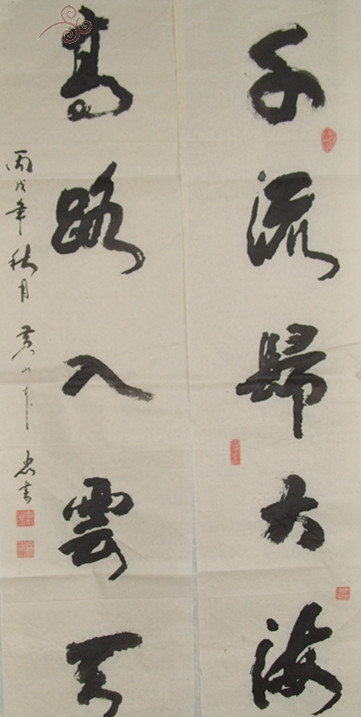 千流歸大海
高路入雲天
丙戌年秋月 黄山
書